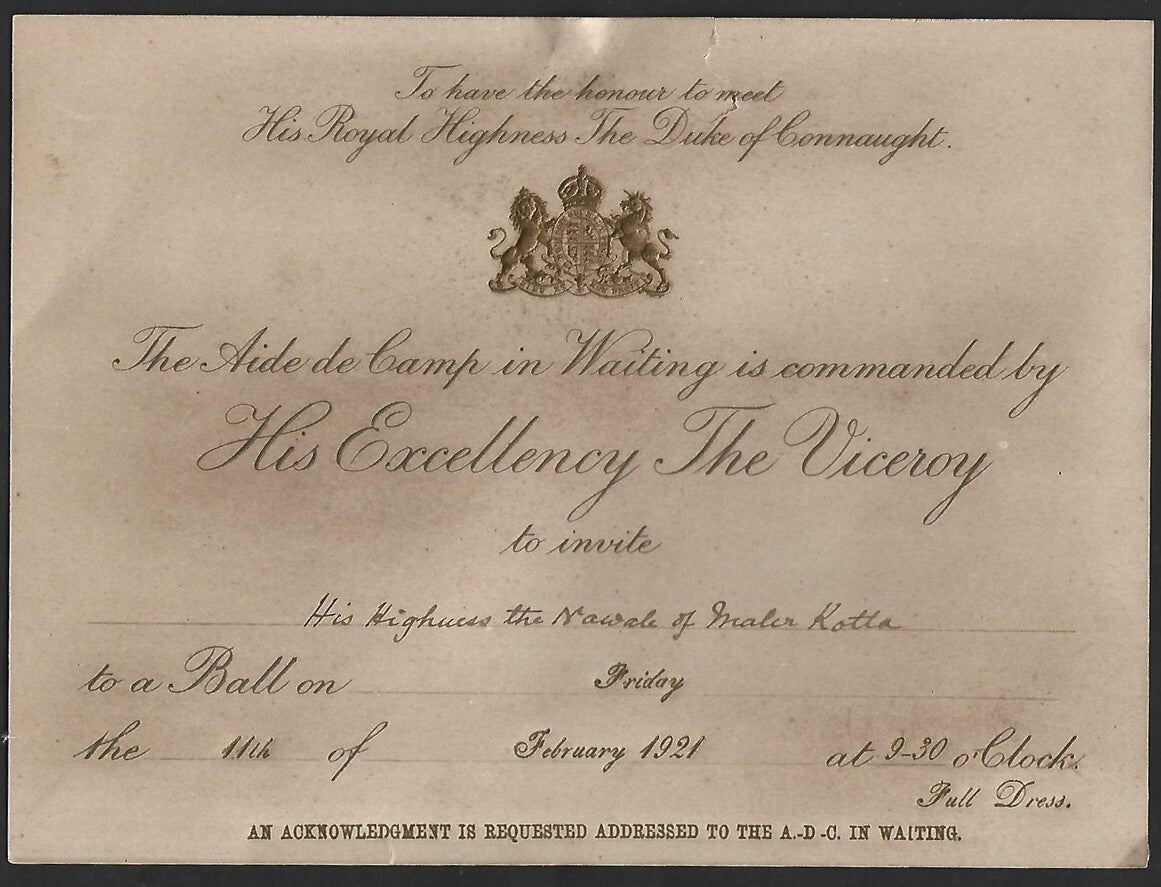 To have the honour to meet
His Royal Highness The Duke of Connaught.
The Aide de Camp in Waiting is commanded by
His Excellency The Viceroy
to invite
His Highness the Nawab of Maler Kotla
to a Ball on Friday
the 11th of February 1921 at 9-30 o'Clock.
Full Dress.
AN ACKNOWLEDGMENT IS REQUESTED ADDRESSED TO THE A.-D-C. IN WAITING.